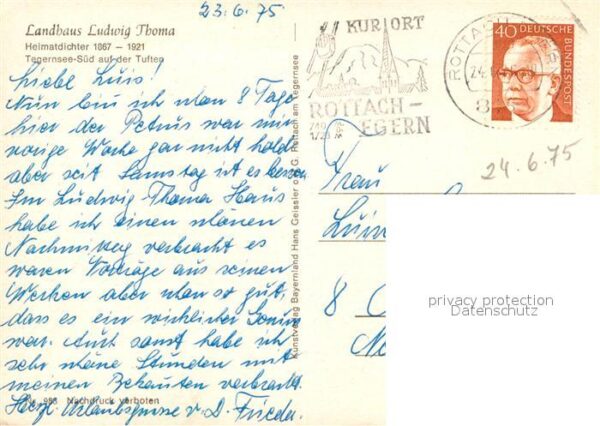 23.6.75
Landhaus Ludwig Thoma
Heimatdichter 1867 – 1921
Tegernsee-Süd auf der Tuften
Liebe Luis!
Nun bin ich schon 8 Tage
hier der Petrus war mir
vorige Woche gar nicht hold
aber seit Samstag ist es besser
Im Ludwig Thoma Haus
habe ich einen schönen
Nachmittag verbracht es
waren Vorträge aus seinen
Werken aber schon so gut,
dass es ein wirklicher Genuss
war. Auch sonst habe ich
sehr schöne Stunden mit
meinen Bekannten verbracht.
Nr. 958 Nachdruck verboten
Herzl. Urlaubsgrüsse v. D. Frieda
Kunstverlag Bayernland Hans Geissler oHG. Rottach am Tegernsee
KURORT
ROTTACH-
EGERN
ROTTACH
40
DEUTSCHE
BUNDESPOST
24.6.75
Frau
8
privacy protection
Datenschutz